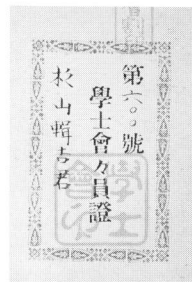 第六〇〇號
學士會々員證
杉山輯吉君
學士會印